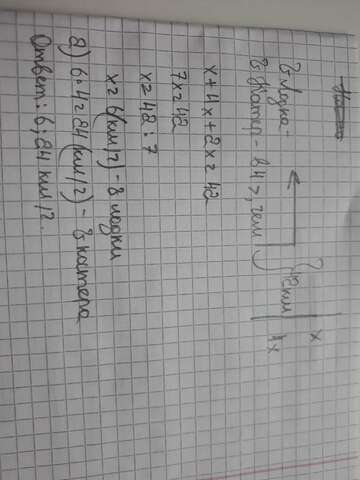 V лодка x
V катер - в 4 >, чем 42км 4x
x + 4x + 2x = 42
7x = 42
x = 42 : 7
x = 6 (км/г) - V лодки
2) 6·4 = 24 (км/г) - V катера
Ответ: 6; 24 км/г.